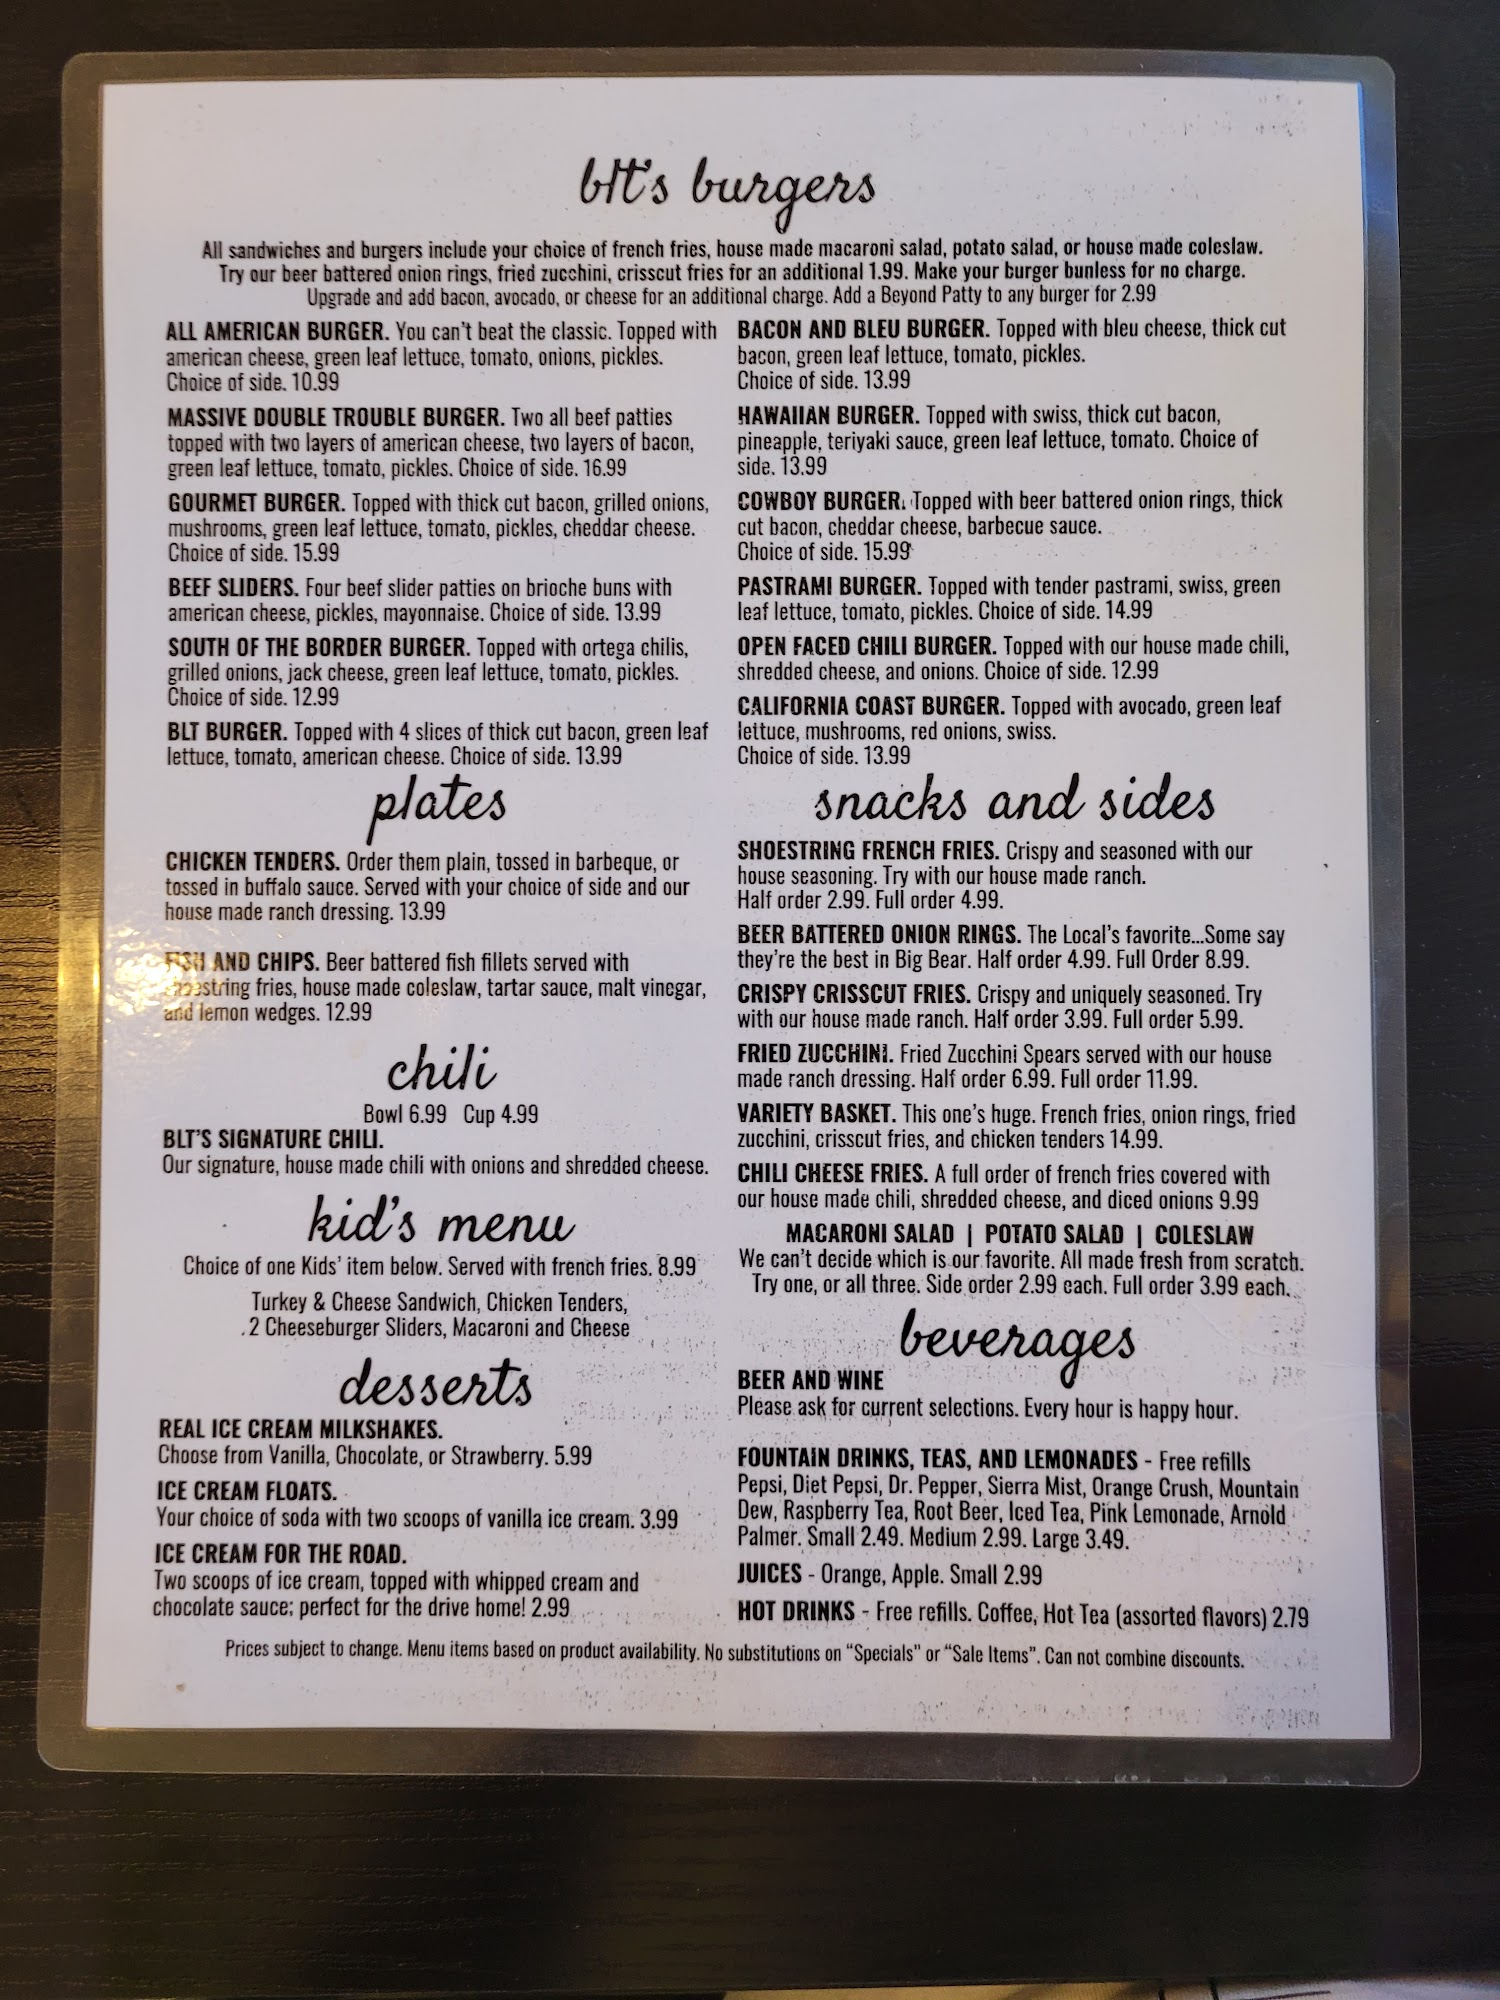 blt's burgers
All sandwiches and burgers include your choice of french fries, house made macaroni salad, potato salad, or house made coleslaw.
Try our beer battered onion rings, fried zucchini, crisscut fries for an additional 1.99. Make your burger bunless for no charge.
Upgrade and add bacon, avocado, or cheese for an additional charge. Add a Beyond Patty to any burger for 2.99
ALL AMERICAN BURGER. You can't beat the classic. Topped with
american cheese, green leaf lettuce, tomato, onions, pickles.
Choice of side. 10.99
MASSIVE DOUBLE TROUBLE BURGER. Two all beef patties
topped with two layers of american cheese, two layers of bacon,
green leaf lettuce, tomato, pickles. Choice of side. 16.99
GOURMET BURGER. Topped with thick cut bacon, grilled onions,
mushrooms, green leaf lettuce, tomato, pickles, cheddar cheese.
Choice of side. 15.99
BEEF SLIDERS. Four beef slider patties on brioche buns with
american cheese, pickles, mayonnaise. Choice of side. 13.99
SOUTH OF THE BORDER BURGER. Topped with ortega chilis,
grilled onions, jack cheese, green leaf lettuce, tomato, pickles.
Choice of side. 12.99
BLT BURGER. Topped with 4 slices of thick cut bacon, green leaf
lettuce, tomato, american cheese. Choice of side. 13.99
BACON AND BLEU BURGER. Topped with bleu cheese, thick cut
bacon, green leaf lettuce, tomato, pickles.
Choice of side. 13.99
HAWAIIAN BURGER. Topped with swiss, thick cut bacon,
pineapple, teriyaki sauce, green leaf lettuce, tomato. Choice of
side. 13.99
COWBOY BURGER. Topped with beer battered onion rings, thick
cut bacon, cheddar cheese, barbecue sauce.
Choice of side. 15.99
PASTRAMI BURGER. Topped with tender pastrami, swiss, green
leaf lettuce, tomato, pickles. Choice of side. 14.99
OPEN FACED CHILI BURGER. Topped with our house made chili,
shredded cheese, and onions. Choice of side. 12.99
CALIFORNIA COAST BURGER. Topped with avocado, green leaf
lettuce, mushrooms, red onions, swiss.
Choice of side. 13.99
plates
CHICKEN TENDERS. Order them plain, tossed in barbeque, or
tossed in buffalo sauce. Served with your choice of side and our
house made ranch dressing. 13.99
FISH AND CHIPS. Beer battered fish fillets served with
shoestring fries, house made coleslaw, tartar sauce, malt vinegar,
and lemon wedges. 12.99
chili
Bowl 6.99 Cup 4.99
BLT'S SIGNATURE CHILI.
Our signature, house made chili with onions and shredded cheese.
kid's menu
Choice of one Kids' item below. Served with french fries. 8.99
Turkey & Cheese Sandwich, Chicken Tenders,
2 Cheeseburger Sliders, Macaroni and Cheese
desserts
REAL ICE CREAM MILKSHAKES.
Choose from Vanilla, Chocolate, or Strawberry. 5.99
ICE CREAM FLOATS.
Your choice of soda with two scoops of vanilla ice cream. 3.99
ICE CREAM FOR THE ROAD.
Two scoops of ice cream, topped with whipped cream and
chocolate sauce; perfect for the drive home! 2.99
snacks and sides
SHOESTRING FRENCH FRIES. Crispy and seasoned with our
house seasoning. Try with our house made ranch.
Half order 2.99. Full order 4.99.
BEER BATTERED ONION RINGS. The Local's favorite...Some say
they're the best in Big Bear. Half order 4.99. Full Order 8.99.
CRISPY CRISSCUT FRIES. Crispy and uniquely seasoned. Try
with our house made ranch. Half order 3.99. Full order 5.99.
FRIED ZUCCHINI. Fried Zucchini Spears served with our house
made ranch dressing. Half order 6.99. Full order 11.99.
VARIETY BASKET. This one's huge. French fries, onion rings, fried
zucchini, crisscut fries, and chicken tenders 14.99.
CHILI CHEESE FRIES. A full order of french fries covered with
our house made chili, shredded cheese, and diced onions 9.99
MACARONI SALAD | POTATO SALAD | COLESLAW
We can't decide which is our favorite. All made fresh from scratch.
Try one, or all three. Side order 2.99 each. Full order 3.99 each.
beverages
BEER AND WINE
Please ask for current selections. Every hour is happy hour.
FOUNTAIN DRINKS, TEAS, AND LEMONADES - Free refills
Pepsi, Diet Pepsi, Dr. Pepper, Sierra Mist, Orange Crush, Mountain
Dew, Raspberry Tea, Root Beer, Iced Tea, Pink Lemonade, Arnold
Palmer. Small 2.49. Medium 2.99. Large 3.49.
JUICES - Orange, Apple. Small 2.99
HOT DRINKS - Free refills. Coffee, Hot Tea (assorted flavors) 2.79
Prices subject to change. Menu items based on product availability. No substitutions on "Specials" or "Sale Items". Can not combine discounts.